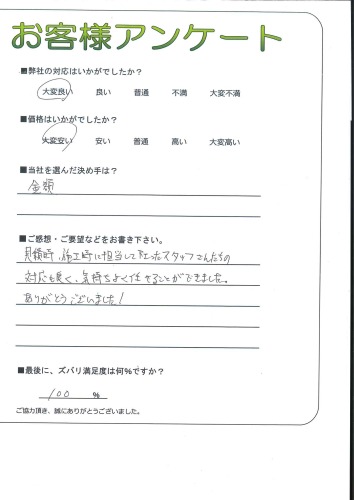 お客様アンケート
■弊社の対応はいかがでしたか？
大変良い 良い 普通 不満 大変不満
■価格はいかがでしたか？
大変安い 安い 普通 高い 大変高い
■当社を選んだ決め手は？
金額
■ご感想・ご要望などをお書き下さい。
見積時、施工時に担当して下さったスタッフさんたちの
対応も良く、気持ちよく任せることができました。
ありがとうございました！
■最後に、ズバリ満足度は何％ですか？
100 %
ご協力頂き、誠にありがとうございました。